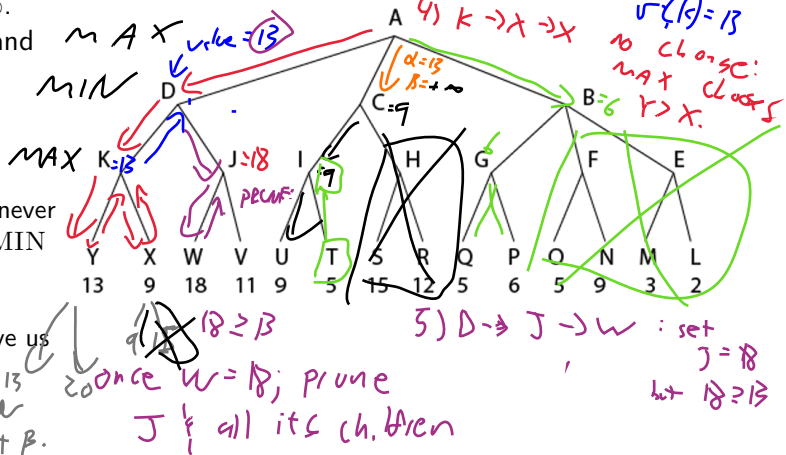 and
MAX
value = 13
A
4) K → X → X
v(K) = 13
no change:
MAX chooses
Y > X.
MIN
D
α=13
β=+∞
C = 9
B = 6
MAX
K = 13
J = 18
I = 9
H
G 6
F
E
PRUNE:
never
MIN
Y X W V U T S R Q P O N M L
13 9 18 11 9 5 15 12 5 6 5 9 3 2
ve us
13
20
9
18 ≥ 13
5) D → J → W : set
J = 18
but 18 ≥ 13
once W = 18; prune
J & all its children
+ β.